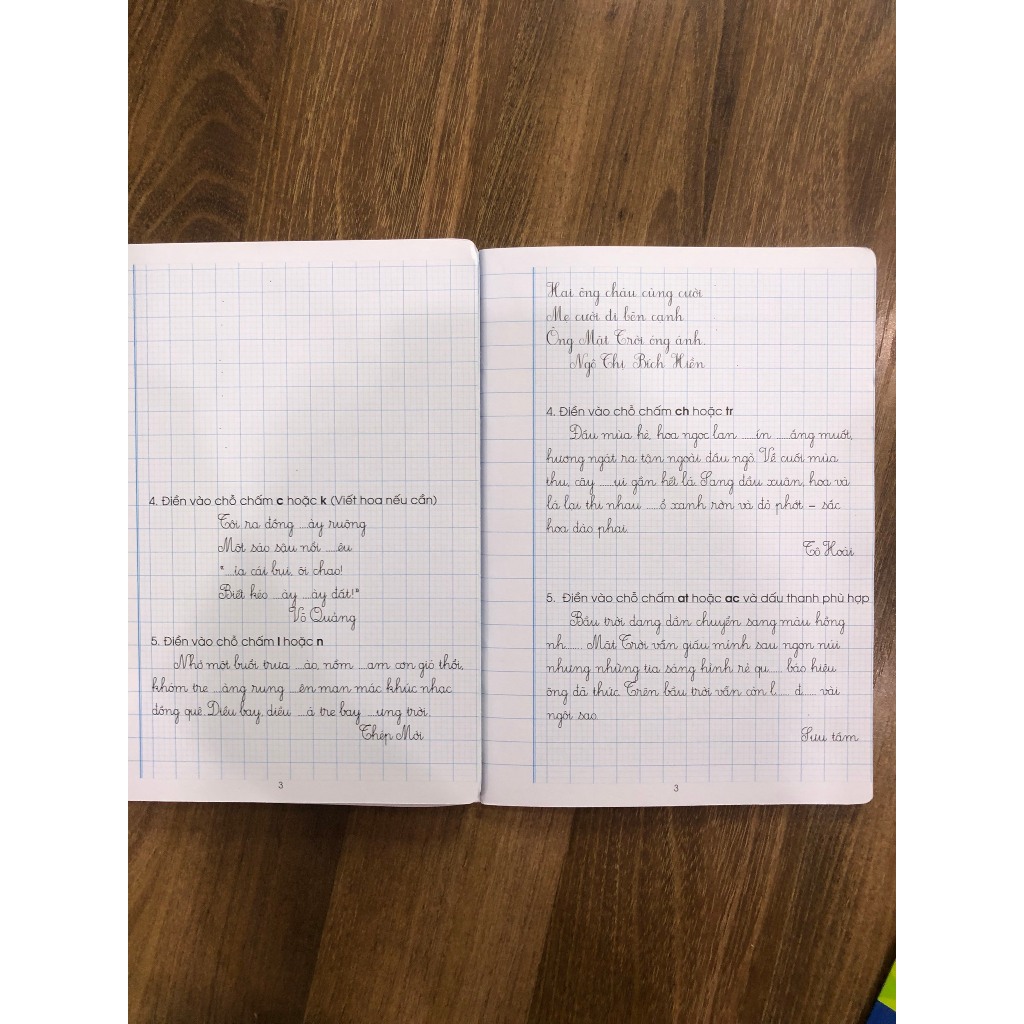 4. Điền vào chỗ chấm c hoặc k (Viết hoa nếu cần)
Tôi ra đồng ...ày ruộng
Một sáo sậu nối ....êu
"...ìa cái bụi, ối chao!
Biết kéo ...ày ....ày đất!"
Võ Quảng
5. Điền vào chỗ chấm l hoặc n
Nhớ một buổi trưa ...ào, nồm ...am cơn gió thổi,
khóm tre ...àng rung ....ên man mác khúc nhạc
đồng quê. Diều bay, diều ...á tre bay ....ưng trời.
Thép Mới
3
Hai ông cháu cùng cười
Mẹ cười đi bên cạnh
Ông Mặt Trời óng ánh.
Ngô Thị Bích Hiền
4. Điền vào chỗ chấm ch hoặc tr
Đầu mùa hè, hoa ngọc lan .....ín ....ắng muốt,
hương ngát ra tận ngoài đầu ngõ. Về cuối mùa
thu, cây .....ụi gần hết lá. Sang đầu xuân, hoa và
lá lại thi nhau .....ổ xanh rờn và đỏ phớt - sắc
hoa đào phai.
Tô Hoài
5. Điền vào chỗ chấm at hoặc ac và dấu thanh phù hợp
Bầu trời đang dần chuyển sang màu hồng
nh...... Mặt Trời vẫn giấu mình sau ngọn núi
nhưng những tia sáng hình rẻ qu .... báo hiệu
ông đã thức. Trên bầu trời vẫn còn l..... đ..... vài
ngôi sao.
Sưu tầm
3